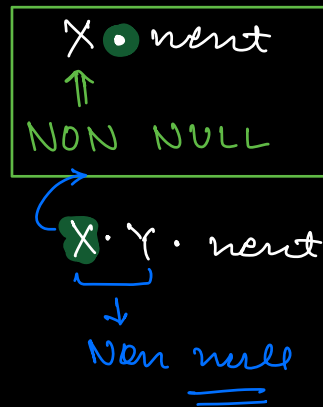 X • nent
NON NULL
X • Y • nent
Non null